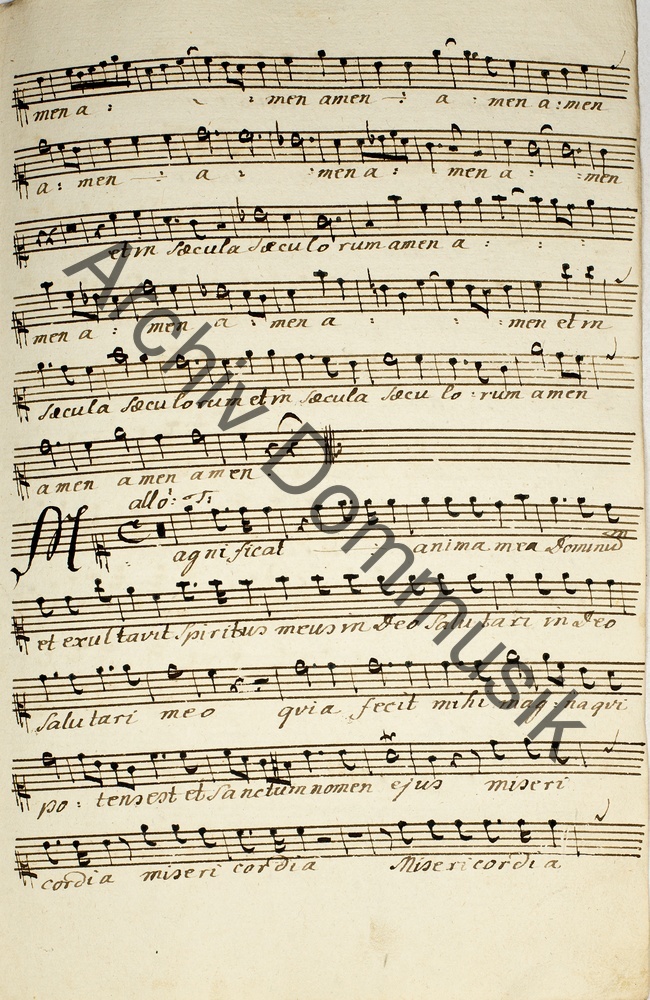 men a : : men amen : a : men a : men
a : men : a : : men a : men a : : men
et in sæcula sæculo rum amen a : : :
men a : men a : men a : : : men et in
sæcula sæculo rum et in sæcula sæcu lo : rum amen
amen amen amen
allo:
M
agnificat anima mea Dominum
et exultavit spiritus meus in Deo salutari in Deo
salutari meo quia fecit mihi mag : na qui
po : tens est et sanctum nomen ejus miseri
cordia misericordia Misericordia
Archiv Dommusik